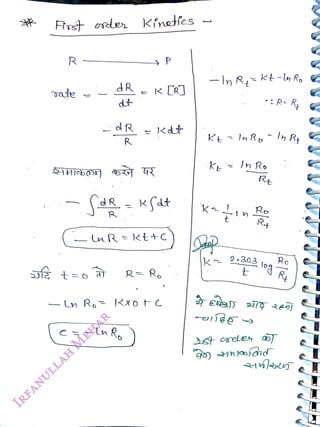 ** First order kinetics -
R ⟶ P
rate = - dR/dt = K [R]
- dR/R = Kdt
समाकलन करने पर
- ∫ dR/R = K∫dt
- ln R = Kt + C
यदि t = 0 तो R = R₀
- ln R₀ = K×0 + C
C = - ln R₀
- ln Rt = Kt - ln R₀
∵ R = Rt
Kt = ln R₀ - ln Rt
Kt = ln R₀/Rt
K = 1/t ln R₀/Rt
K = 2.303/t log R₀/Rt
ये हमेशा याद रखना
चाहिए →
order का
वेग समाकलित
समीकरण
IRFANULLAH MEHAR